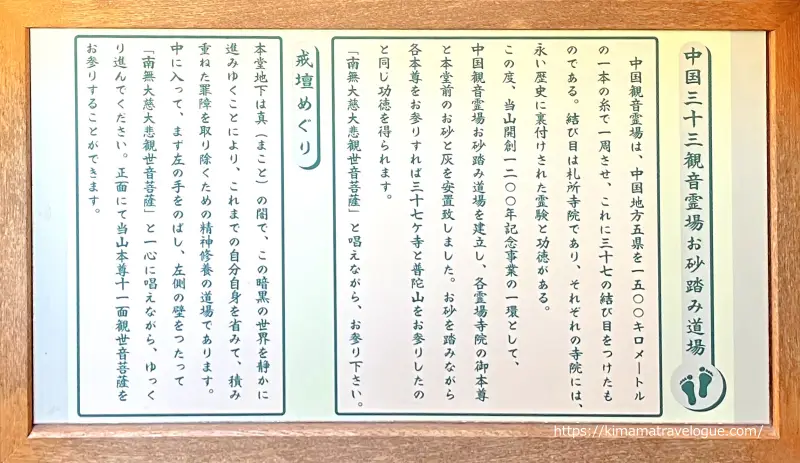 中国三十三観音霊場お砂踏み道場
中国観音霊場は、中国地方五県を一五〇〇キロメートル
の一本の糸で一周させ、これに三十七の結び目をつけたも
のである。結び目は札所寺院であり、それぞれの寺院には、
永い歴史に裏付けされた霊験と功徳がある。
この度、当山開創一二〇〇年記念事業の一環として、
中国観音霊場お砂踏み道場を建立し、各霊場寺院の御本尊
と本堂前のお砂と灰を安置致しました。お砂を踏みながら
各本尊をお参りすれば三十七ケ寺と普陀山をお参りしたの
と同じ功徳を得られます。
「南無大慈大悲観世音菩薩」と唱えながら、お参り下さい。
戒壇めぐり
本堂地下は真（まこと）の闇で、この暗黒の世界を静かに
進みゆくことにより、これまでの自分自身を省みて、積み
重ねた罪障を取り除くための精神修養の道場であります。
中に入って、まず左の手をのばし、左側の壁をつたって
「南無大慈大悲観世音菩薩」と一心に唱えながら、ゆっく
り進んでください。正面にて当山本尊十一面観世音菩薩を
お参りすることができます。
https://kimamatravelogue.com/